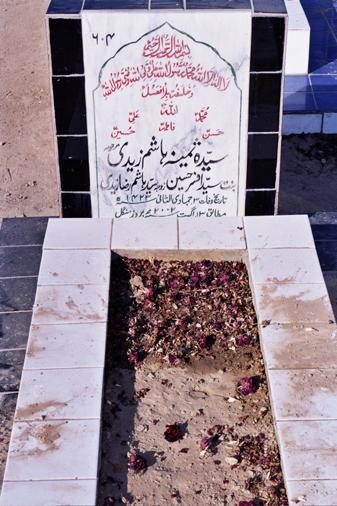 ۶۰۴
بسم اللہ الرحمن الرحیم
لا الہ الا اللہ محمد رسول اللہ علی ولی اللہ وصی رسول اللہ
وخلیفتہ بلا فصل
اللہ
محمد فاطمہ علی
حسن حسین
سیدہ ثمینہ ہاشم زیدی
بنت سید افسر حسین زوجہ سید ہاشم رضا زیدی
تاریخ وفات ۳ جمادی الثانی ۱۴۲۳ھ
مطابق ۱۳ اگست ۲۰۰۲ء بروز منگل